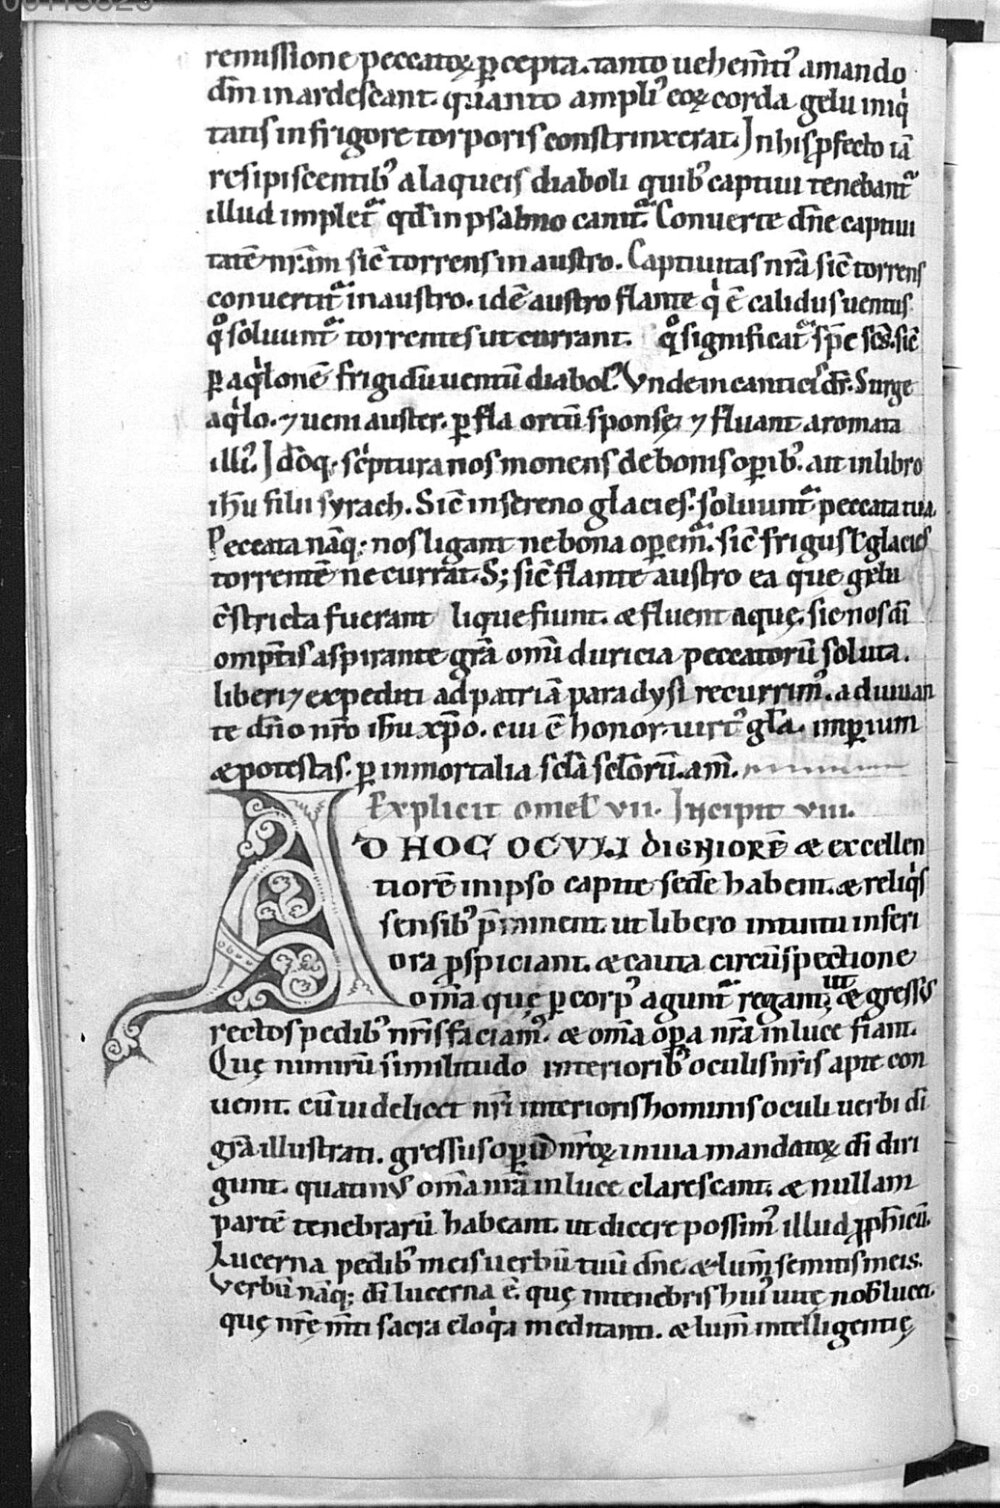 remissione peccatoꝝ ꝑcepta. tanto uehem̅tiꝰ amando
dn̅m inardescant. quanto ampliꝰ eoꝝ corda gelu iniqͥ
tatis in frigore torporis constrinxerat. In his ꝓfecto ia̅
resipiscentibꝰ a laqueis diaboli quibꝰ captiui tenebant᷑
illud implet᷑ qd̅ in psalmo canit᷑. Conuerte dn̅e captiui
tate̅ nr̅am sic̅ torrens in austro. Captiuitas nr̅a sic̅ torrens
conuertit᷑ in austro. ide̅ austro flante qͥ e̅ calidus uentus.
qͦ soluunt᷑ torrentes ut currant. qͦ significat᷑ sp̅c sc̅s. sic̅
ꝑ aqͥlone̅ frigidu̅ uentu̅ diabolꝰ. Vnde in canticis dr̅. Surge
aqͥlo. ⁊ ueni auster. ꝑfla ortu̅ sponsę. ⁊ fluant aromata
illiꝰ. Idoq; scͥptura nos monens de bonis oꝑibꝰ. ait in libro
ih̅u filii syrach. Sic̅ in sereno glacies. soluunt᷑ peccata tua.
Peccata na̅q; nos ligant ne bona oꝑem᷑. sic̅ frigus ł glacies
torrente̅ ne currat. S; sic̅ flante austro ea que gelu
c̅stricta fuerant liquefiunt. & fluent aquę. sic nos di̅
omp̅tis aspirante gr̅a omi̅ duricia peccatoru̅ soluta.
liberi ⁊ expediti ad patria̅ paradysi recurrimꝰ. adiuuan
te dn̅o nr̅o ih̅u xp̅o. cui e̅ honor. uirtꝰ gl̅a. imꝑium
& potestas. ꝑ inmortalia sc̅la sc̅loru̅. am̅.
Explicit omel̅ vii. Incipit viii.
AD HOC OCVLI DIGNIORE̅ & excellen
tiore̅ in ipso capite sede̅ habent. & reliqͥs
sensibꝰ p̅minent. ut libero intuitu inferi
ora ꝓspiciant. & cauta circu̅spectione
om̅a quę ꝑ corpꝰ agunt᷑ regant. ut & gressꝰ
rectos pedibꝰ nr̅is faciamꝰ. & om̅a oꝑa nr̅a in luce fiant.
Quę nimiru̅ similitudo interioribꝰ oculis nr̅is apte con
uenit. cu̅ uidelicet nr̅i interioris hominis oculi uerbi di̅
gr̅a illustrati. gressus oꝑu̅ nr̅oꝝ in uia mandatoꝝ di̅ diri
gunt. quatinꝰ om̅a nr̅a in luce clarescant. & nullam
parte̅ tenebraru̅ habeant. ut dicere possimꝰ illud ꝓph̅icu̅.
Lucerna pedibꝰ meis uerbu̅ tuu̅ dn̅e. & lum̅ semitis meis.
Verbu̅ na̅q; di̅ lucerna e̅. quę in tenebris huiꝰ uitę nob̅ lucet.
quę nr̅ę m̅ti sacra eloqͥa meditanti. & lum̅ intelligentię